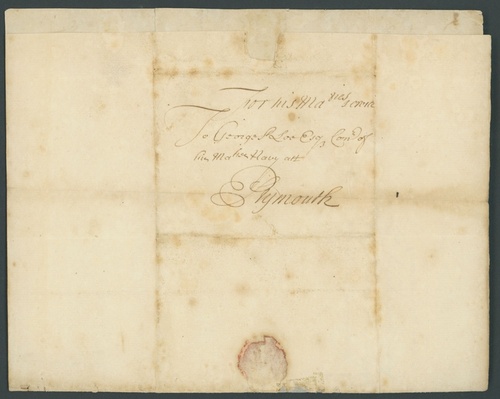 For his Maties service
To George St Lo Esqr Comr of
his Maties Navy att
Plymouth